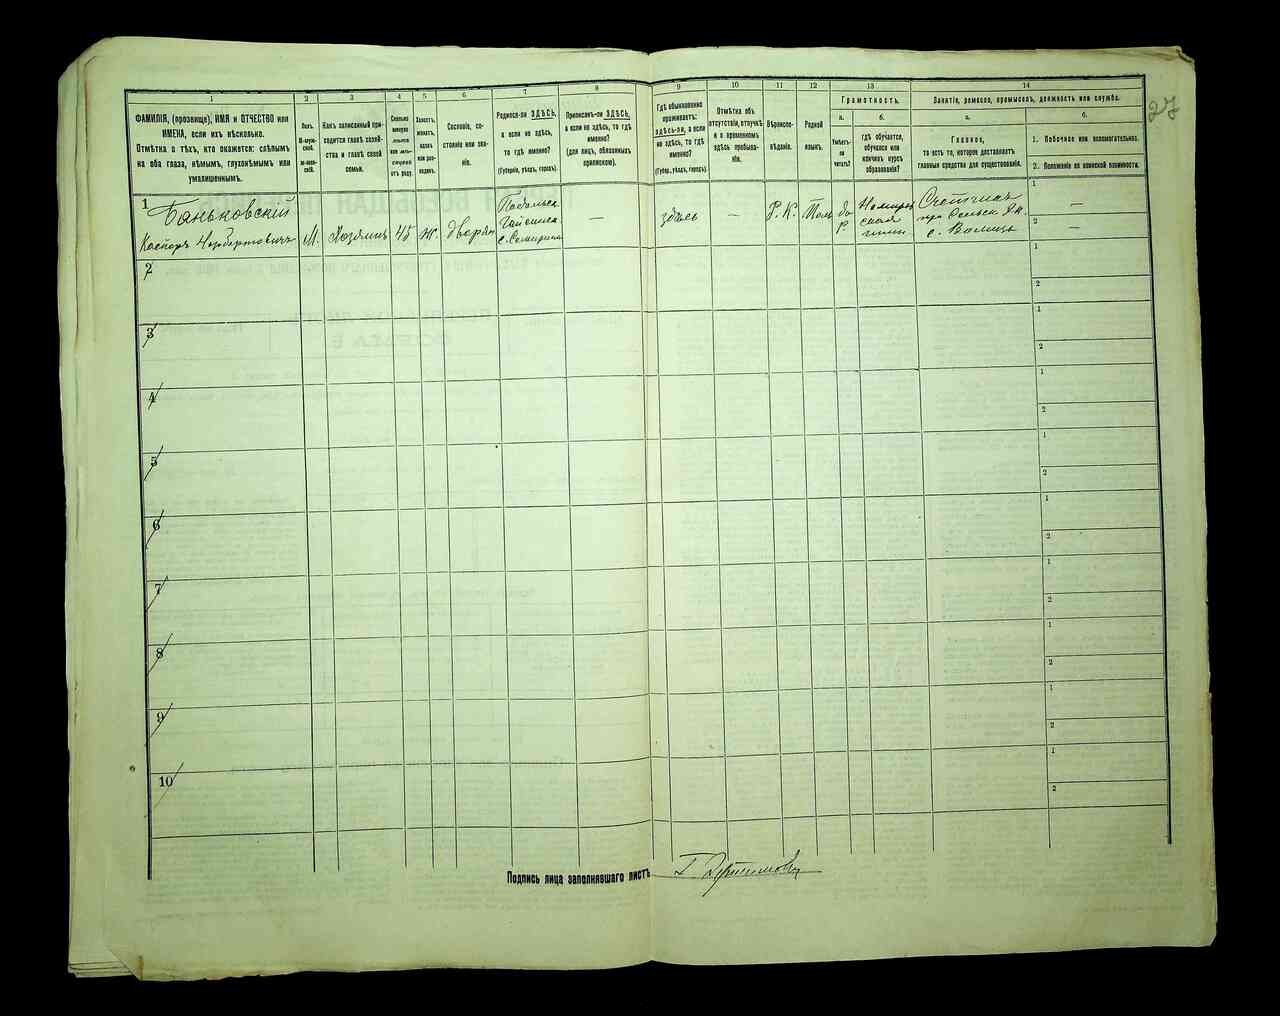 27
1 2 3 4 5 6 7 8 9 10 11 12 13 14
ФАМИЛІЯ, (прозвище), ИМЯ и ОТЧЕСТВО или
ИМЕНА, если ихъ нѣсколько.
Отмѣтка о тѣхъ, кто окажется: слѣпымъ
на оба глаза, нѣмымъ, глухонѣмымъ или
умалишеннымъ.
Полъ.
М-муж-
ской.
Ж-жен-
скій.
Какъ записанный при-
ходится главѣ хозяй-
ства и главѣ своей
семьи.
Сколько
минуло
лѣтъ
или мѣ-
сяцевъ
отъ роду.
Холостъ,
женатъ,
вдовъ
или раз-
веденъ.
Сословіе, со-
стояніе или зва-
ніе.
Родился-ли ЗДѢСЬ,
а если не здѣсь,
то гдѣ именно?
(Губернія, уѣздъ, городъ).
Приписанъ-ли ЗДѢСЬ,
а если не здѣсь, то гдѣ
именно?
(для лицъ, обязанныхъ
припискою).
Гдѣ обыкновенно
проживаетъ:
ЗДѢСЬ-ли, а если
не здѣсь, то гдѣ
именно?
(Губер., уѣздъ, городъ).
Отмѣтка объ
отсутствіи, отлучкѣ
и о временномъ
здѣсь пребыва-
ніи.
Вѣроиспо-
вѣданіе.
Родной
языкъ.
Грамотность.
а.
Умѣетъ-
ли
читать?
б.
гдѣ обучается,
обучался или
кончилъ курсъ
образованія?
Занятіе, ремесло, промыселъ, должность или служба.
а.
Главное,
то есть то, которое доставляетъ
главныя средства для существованія.
б.
1. Побочное или вспомогательное.
2. Положеніе по воинской повинности.
1
Баньковскій
Касперъ Норбертовичъ
М.
Хозяинъ
45
Ж.
дворян
Подольск
Гайсинск
—
здѣсь
—
Р. К.
Пол
да
Немиров
ская
гимн
1 —
2 —
2
1
2
3
1
2
4
1
2
5
1
2
6
1
2
7
1
2
8
1
2
9
1
2
10
1
2
Подпись лица заполнявшаго листъ